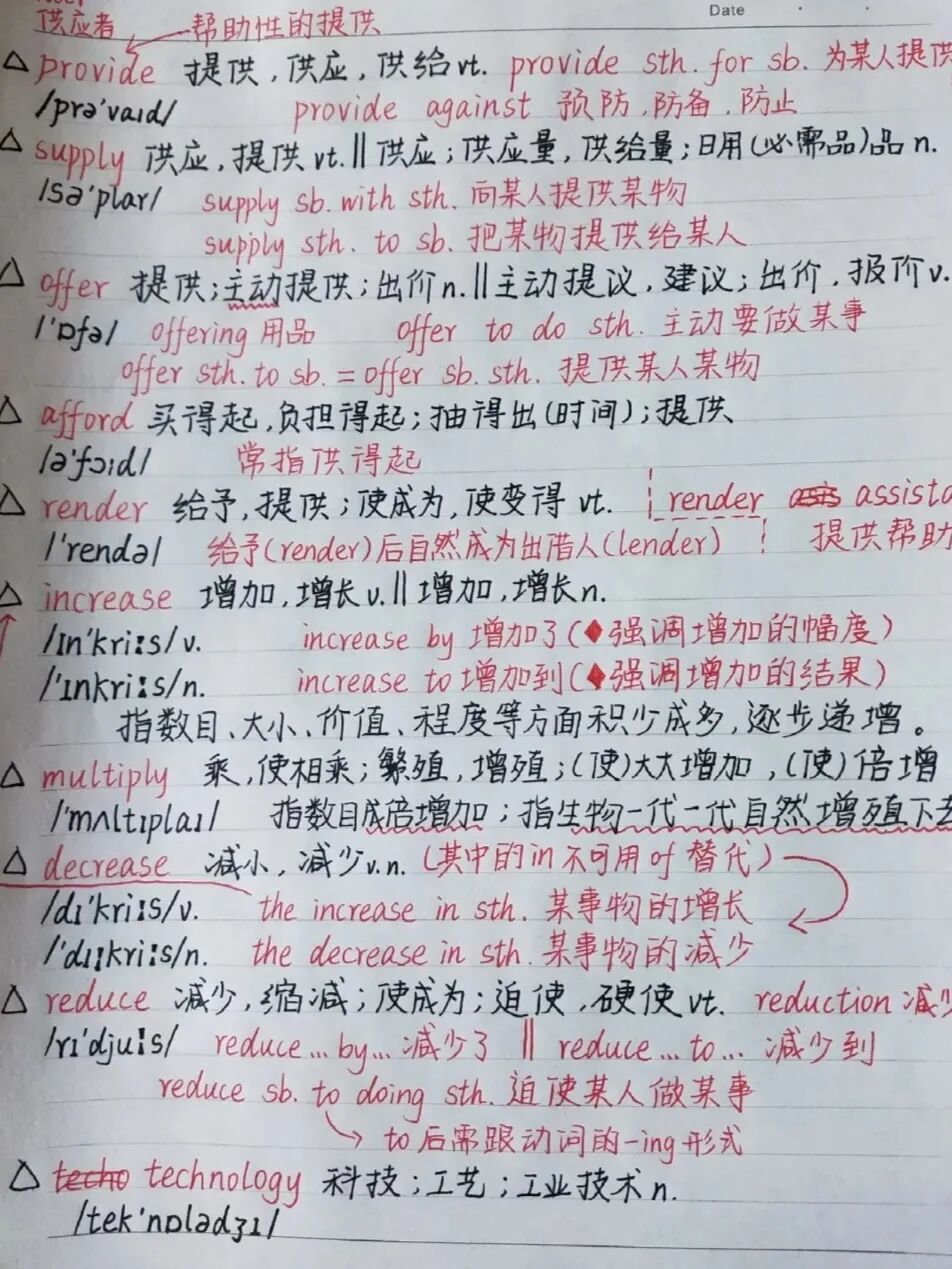 Date
供应者 帮助性的提供
△ provide 提供,供应,供给vt. provide sth. for sb. 为某人提供
/prə'vaɪd/ provide against 预防,防备,防止
△ supply 供应,提供vt.‖供应;供应量,供给量;日用(必需品)品n.
/sə'plaɪ/ supply sb. with sth. 向某人提供某物
supply sth. to sb. 把某物提供给某人
△ offer 提供;主动提供;出价n.‖主动提议,建议;出价,报价v.
/'ɒfə/ offering 用品 offer to do sth. 主动要做某事
offer sth. to sb. = offer sb. sth. 提供某人某物
△ afford 买得起,负担得起;抽得出(时间);提供
/ə'fɔːd/ 常指供得起
△ render 给予,提供;使成为,使变得 vt. render assista
/'rendə/ 给予(render)后自然成为出借人(lender) 提供帮助
△ increase 增加,增长v.‖增加,增长n.
/ɪn'kriːs/v. increase by 增加了(♦强调增加的幅度)
/'ɪnkriːs/n. increase to 增加到(♦强调增加的结果)
指数目、大小、价值、程度等方面积少成多,逐步递增。
△ multiply 乘,使相乘;繁殖,增殖;(使)大大增加,(使)倍增
/'mʌltɪplaɪ/ 指数目成倍增加;指生物一代一代自然增殖下去
△ decrease 减小,减少v.n.(其中的in不可用of替代)
/dɪ'kriːs/v. the increase in sth. 某事物的增长
/'dɪːkriːs/n. the decrease in sth. 某事物的减少
△ reduce 减少,缩减;使成为;迫使,硬使vt. reduction 减少
/rɪ'djuːs/ reduce...by...减少了 ‖ reduce...to... 减少到
reduce sb. to doing sth. 迫使某人做某事
to后需跟动词的-ing形式
△ techo technology 科技;工艺;工业技术n.
/tek'nɒlədʒɪ/